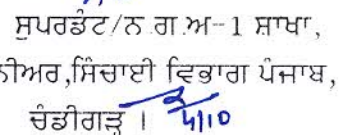 ਸੁਪਰਡੰਟ/ਨ.ਗ.ਅ--1 ਸ਼ਾਖਾ,
ਨੀਅਰ,ਸਿੰਚਾਈ ਵਿਭਾਗ ਪੰਜਾਬ,
ਚੰਡੀਗੜ੍ਹ ।
4/10